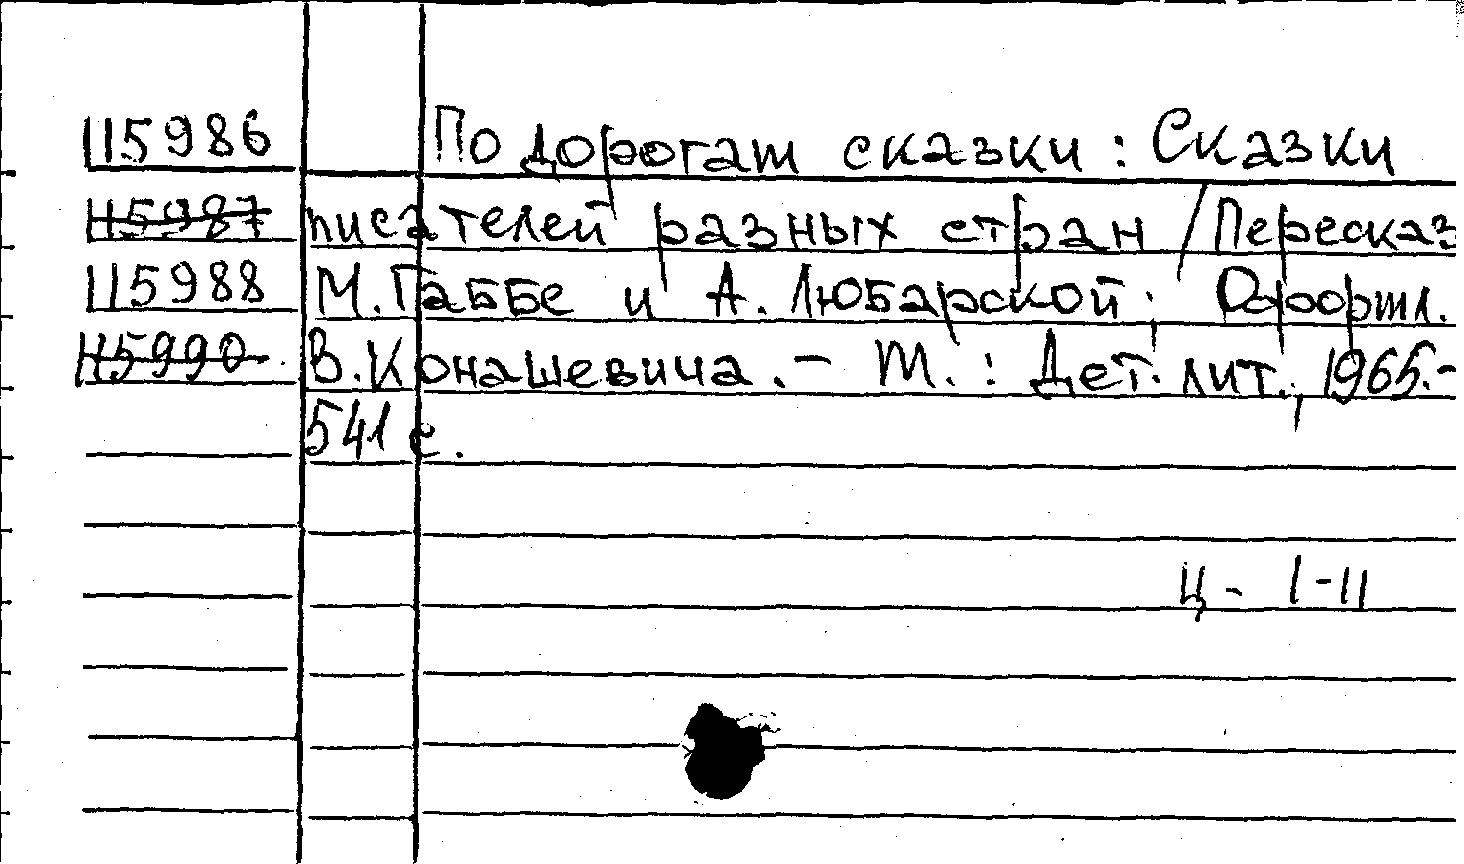 115986 По дорогам сказки : Сказки
115987 писателей разных стран / Пересказ
115988 М. Габбе и А. Любарской ; Оформл.
115990 В. Конашевича . – М. : Дет. лит., 1965.-
541 с.
Ц - I-II